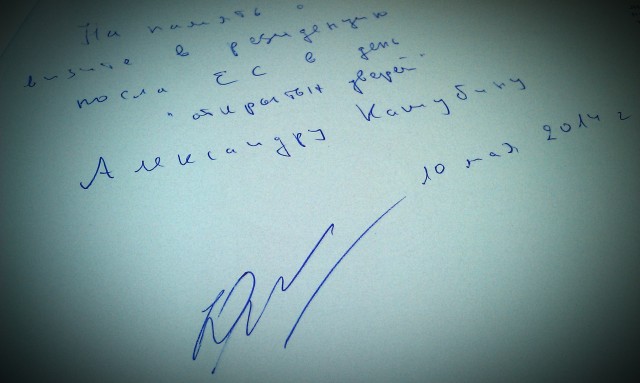 На память о
визите в резиденцию
посла ЕС в день
"открытых дверей"
Александру Кашубину
10 мая 2014 г